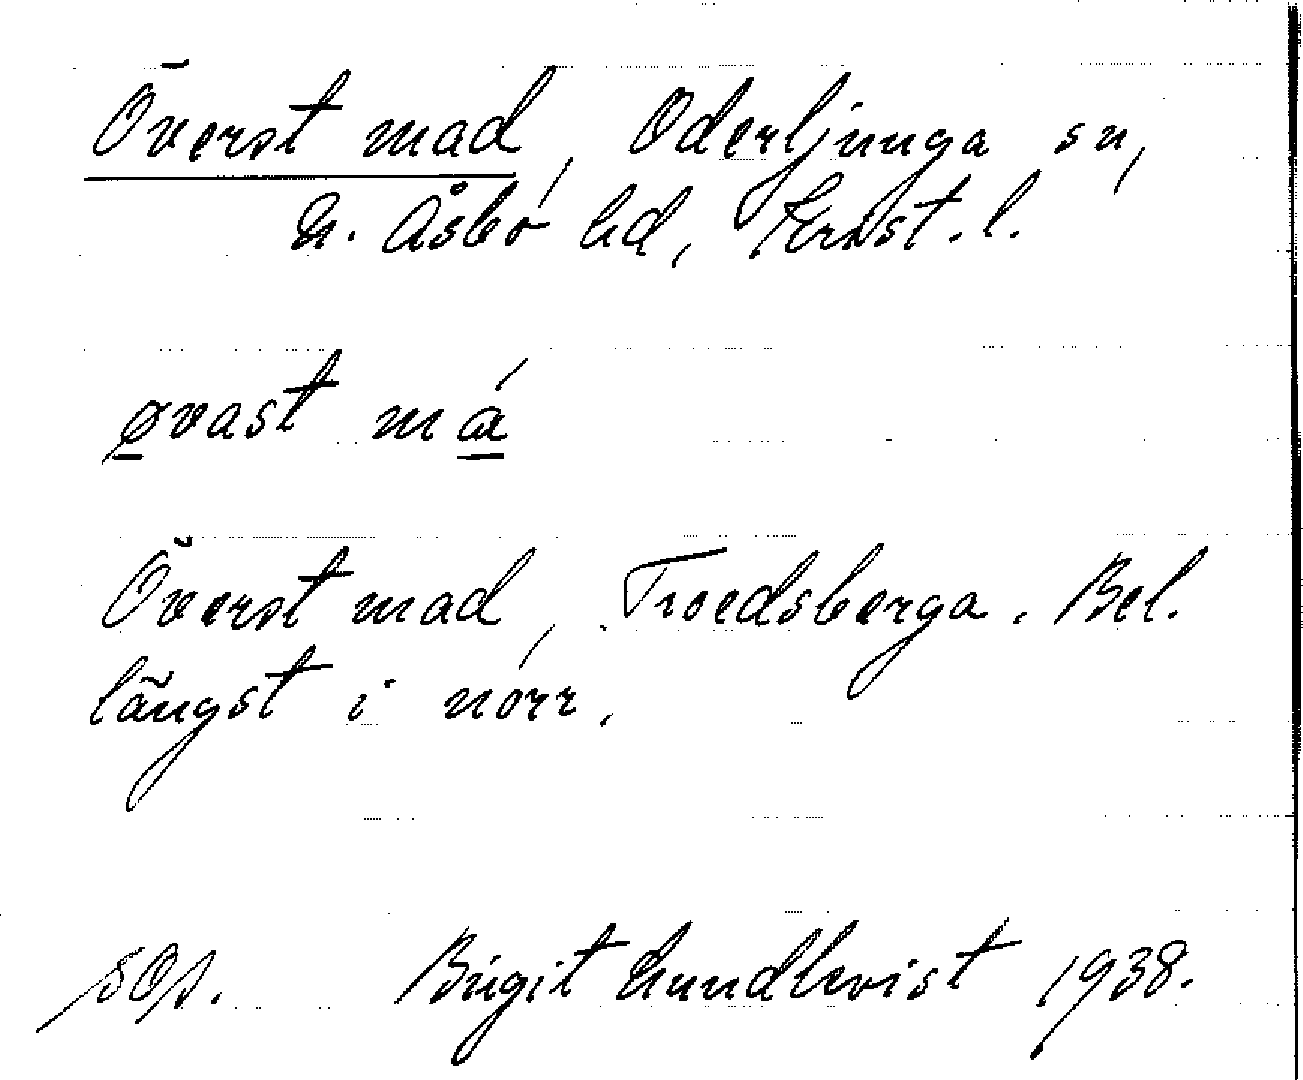 Överst mad, Oderljunga sn,
N. Åsbo hd, Krist. l.
øvast má
Överst mad, Troedsberga. Bel.
längst i norr.
Birgit Lundkvist 1938.